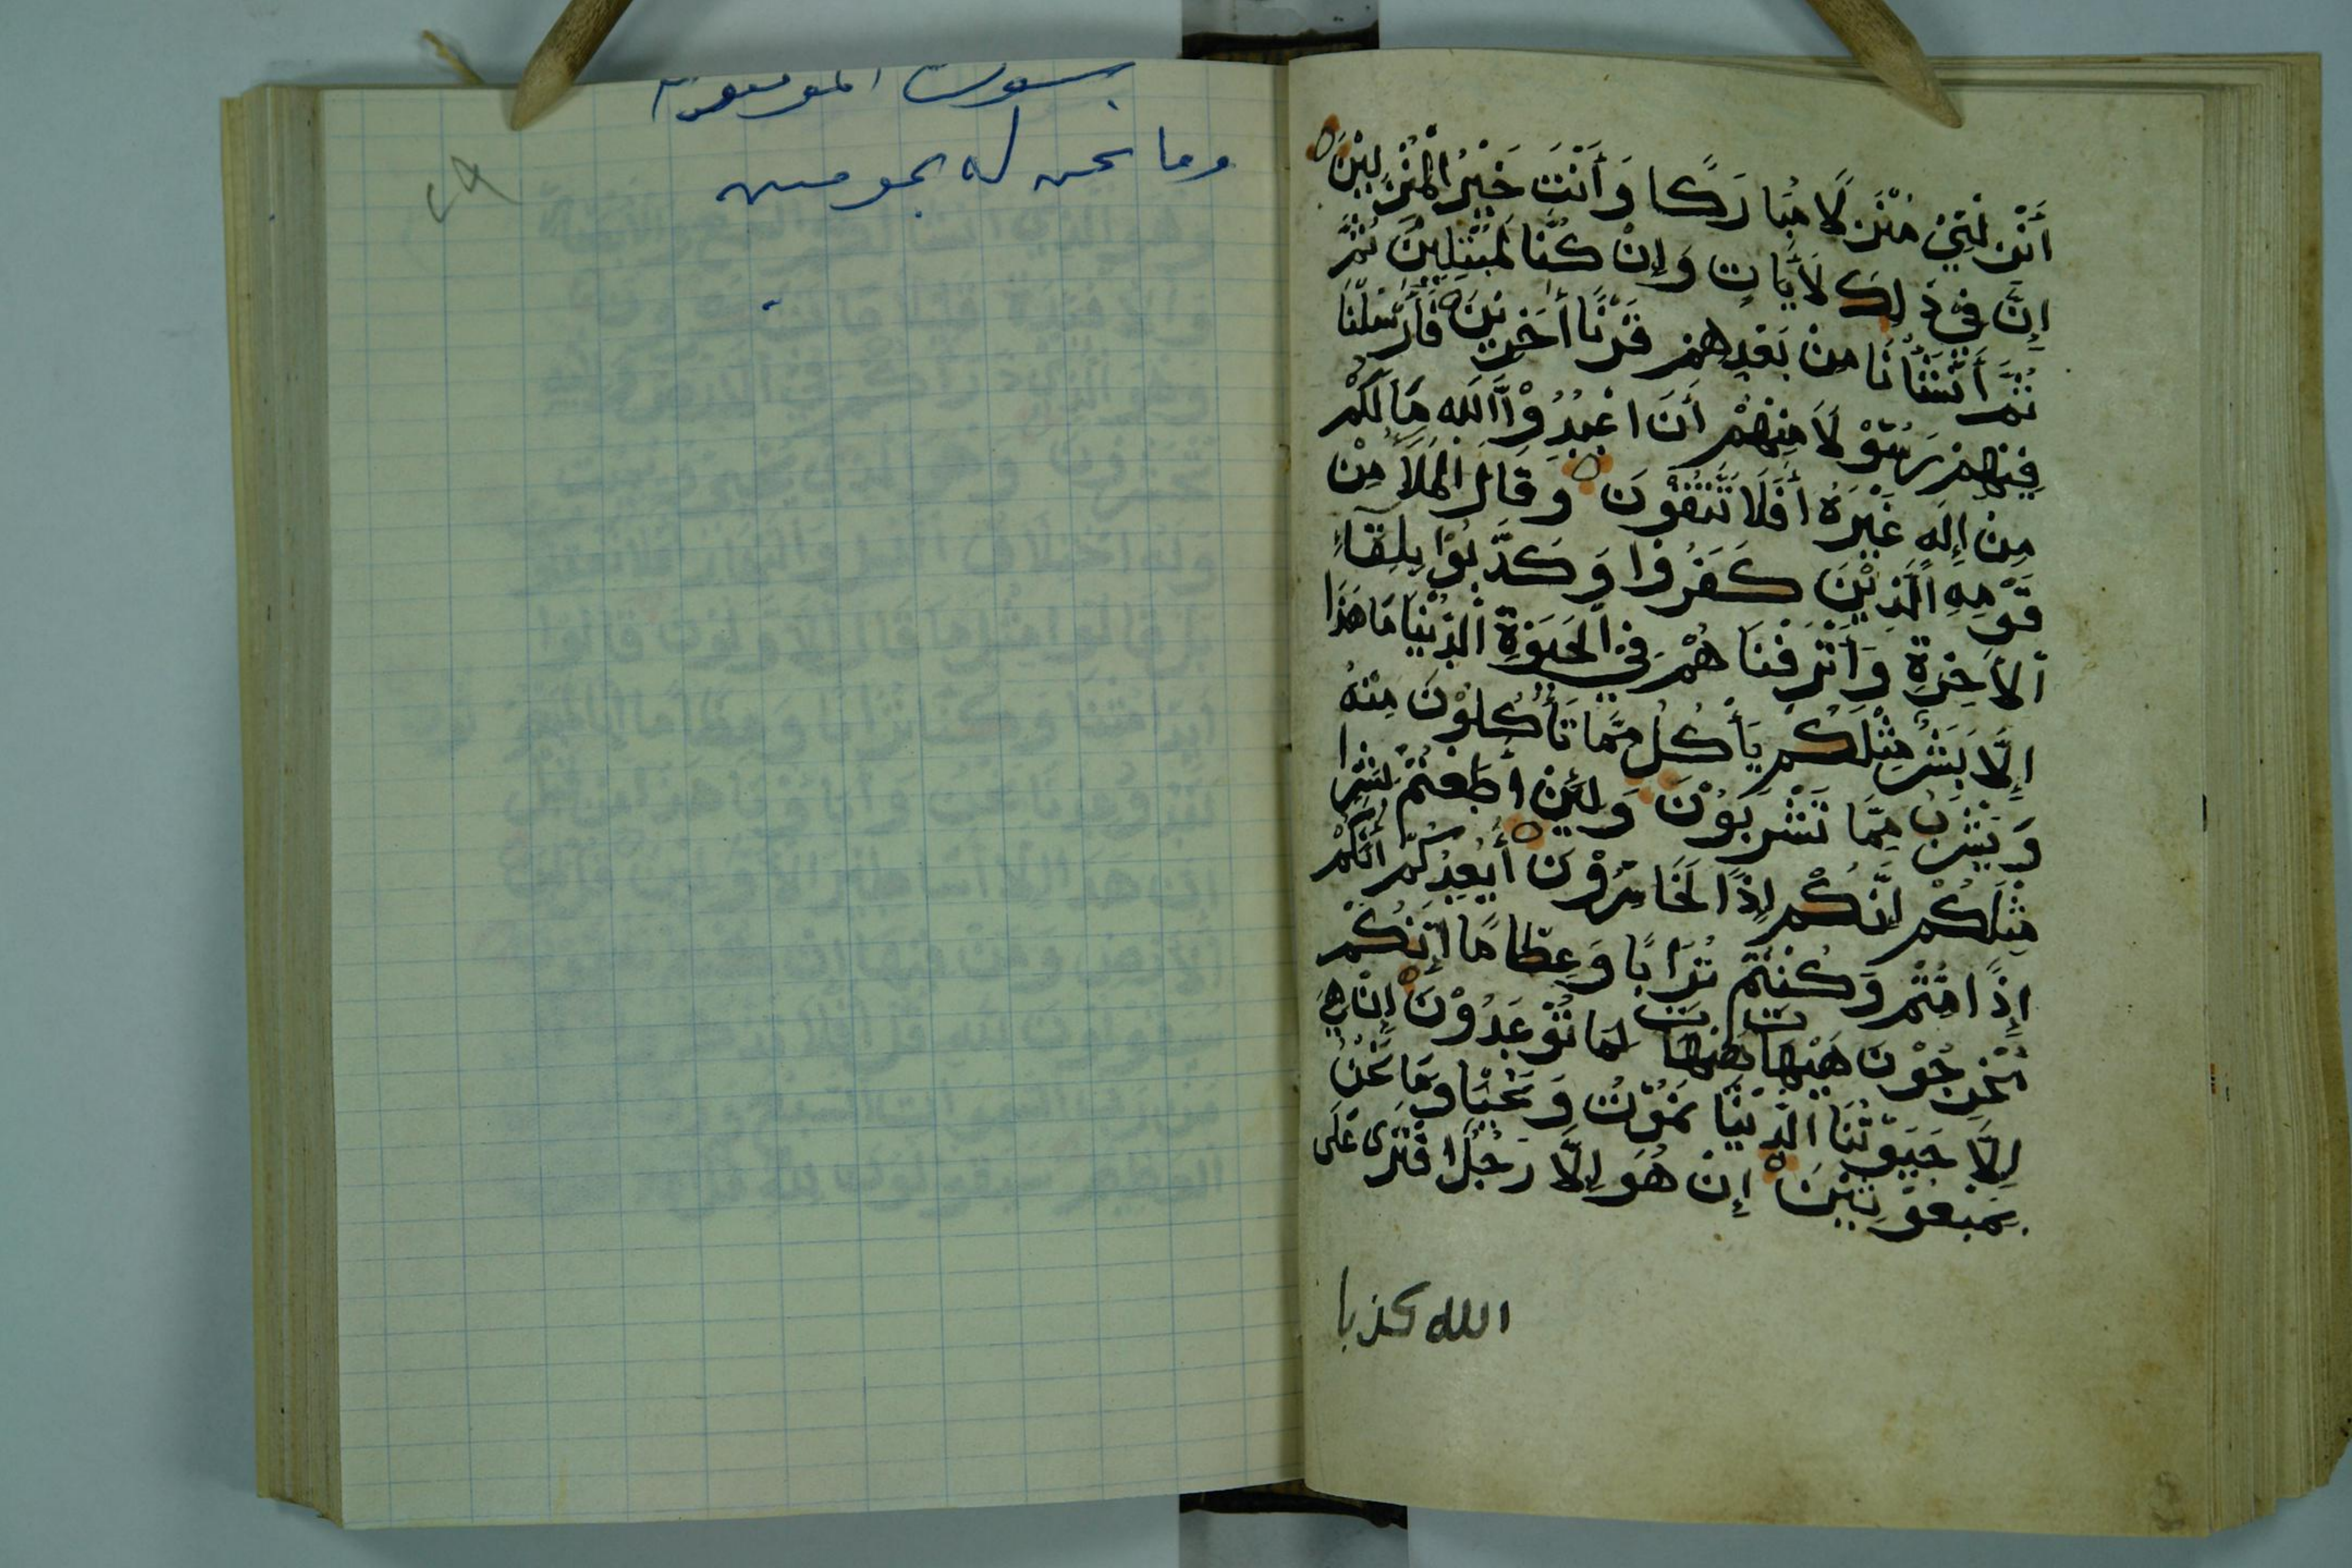 أَنْزِلْنِيْ مُنْزَلًا مُبَارَكًا وَأَنْتَ خَيْرُ الْمُنْزِلِيْنَ
إِنَّ فِيْ ذٰلِكَ لَأَيَاتٍ وَإِنْ كُنَّا لَمُبْتَلِيْنَ ثُمَّ
ثُمَّ أَنْشَأْنَا مِنْ بَعْدِهِمْ قَرْنًا أَخَرِيْنَ فَأَرْسَلْنَا
فِيْهِمْ رَسُوْلًا مِنْهُمْ أَنَ اعْبُدُوْا اللَّهَ مَالَكُمْ
مِنْ إِلَهٍ غَيْرُهُ أَفَلَا تَتَّقُوْنَ وَقَالَ الْمَلَأُ مِنْ
قَوْمِهِ الَّذِيْنَ كَفَرُوْا وَكَذَّبُوْا بِلِقَاءِ
الْأَخِرَةِ وَأَتْرَفْنَا هُمْ فِي الْحَيَوةِ الدُّنْيَا مَا هَذَا
إِلَّا بَشَرٌ مِثْلُكُمْ يَأْكُلُ مِمَّا تَأْكُلُوْنَ مِنْهُ
وَيَشْرَبُ مِمَّا تَشْرَبُوْنَ وَلَئِنْ أَطَعْتُمْ بَشَرًا
مِثْلَكُمْ إِنَّكُمْ إِذًا لَخَاسِرُوْنَ أَيَعِدُكُمْ أَنَّكُمْ
إِذَا مِتُّمْ وَكُنْتُمْ تُرَابًا وَعِظَامًا إِنَّكُمْ
تُخْرَجُوْنَ هَيْهَاتَ هَيْهَاتَ لِمَا تُوْعَدُوْنَ إِنْ هِيَ
إِلَّا حَيَوتُنَا الدُّنْيَا نَمُوْتُ وَنَحْيَا وَمَا نَحْنُ
بِمَبْعُوْثِيْنَ إِنْ هُوَ إِلَّا رَجُلٌ افْتَرَى عَلَى
الله كذبا
وما نحن له بمومنين